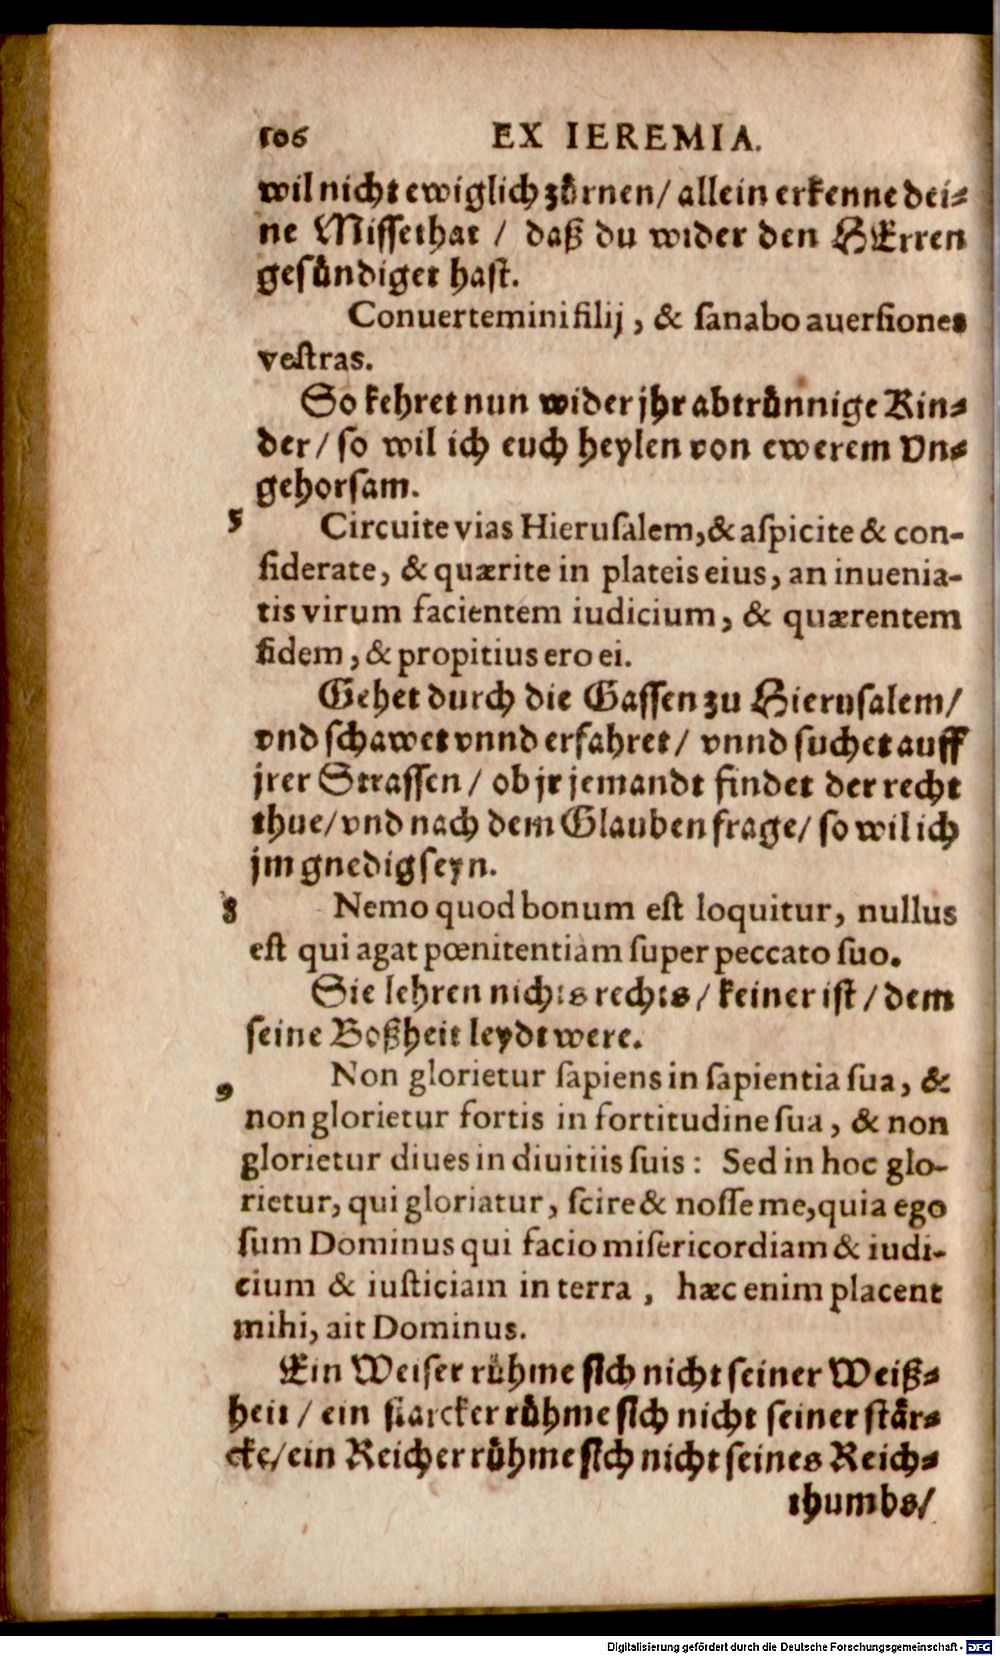 106 EX IEREMIA.
wil nicht ewiglich zůrnen/ allein erkenne dei⸗
ne Missethat / daß du wider den HErren
gesůndiget hast.
Conuertemini filij , & ſanabo auerſiones
veſtras.
So kehret nun wider jhr abtrůnnige Kin⸗
der/ so wil ich euch heylen von ewerem Vn⸗
gehorsam.
5 Circuite vias Hieruſalem,& aſpicite & con-
ſiderate, & quærite in plateis eius, an inuenia-
tis virum facientem iudicium, & quærentem
fidem , & propitius ero ei.
Gehet durch die Gassen zu Hierusalem/
vnd schawet vnnd erfahret/ vnnd suchet auff
jrer Strassen / ob jr jemandt findet der recht
thue/ vnd nach dem Glauben frage/ so wil ich
jm gnedig seyn.
8 Nemo quod bonum eſt loquitur, nullus
eſt qui agat pœnitentiam ſuper peccato ſuo.
Sie lehren nichts rechts/ keiner ist / dem
seine Boßheit leydt were.
9 Non glorietur ſapiens in ſapientia ſua, &
non glorietur fortis in fortitudine ſua , & non
glorietur diues in diuitiis ſuis : Sed in hoc glo-
rietur, qui gloriatur, ſcire & noſſe me,quia ego
ſum Dominus qui facio miſericordiam & iudi-
cium & iuſticiam in terra , hæc enim placent
mihi, ait Dominus.
Ein Weiser růhme sich nicht seiner Weiß⸗
heit / ein starcker růhme sich nicht seiner står⸗
cke/ ein Reicher růhme sich nicht seines Reich⸗
thumbs/
Digitalisierung gefördert durch die Deutsche Forschungsgemeinschaft - DFG